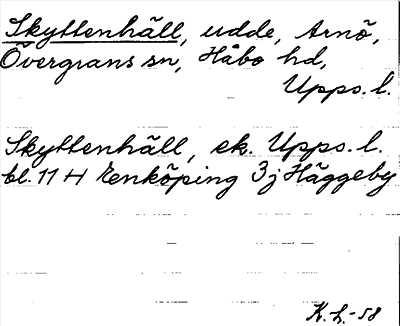 Skyttenhäll, udde, Arnö,
Övergrans sn, Håbo hd,
Upps. l.
Skyttenhäll, ek. Upps. l.
bl. 11 H Enköping 3j Häggeby
K. L. -58